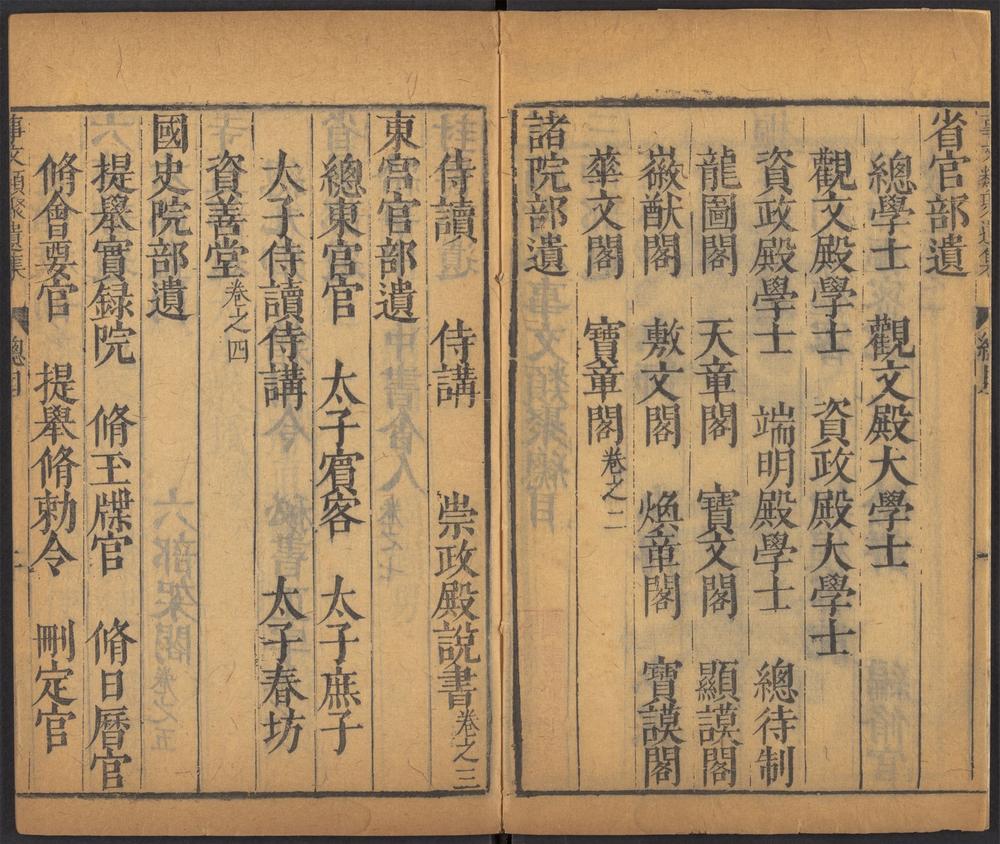 省官部遺
總學士　觀文殿大學士
觀文殿學士　資政殿大學士
資政殿學士　端明殿學士　總待制
龍圖閣　天章閣　寶文閣　顯謨閣
薇猷閣　敷文閣　煥章閣　寶謨閣
華文閣　寶章閣　卷之二
諸院部遺
侍讀　侍講　崇政殿說書　卷之三
東宮官部遺
總東宮官　太子賓客　太子庶子
太子侍讀侍講　太子春坊
資善堂　卷之四
國史院部遺
提舉實録院　脩玉牒官　脩日曆官
脩會要官　提舉脩勅令　刪定官
事文類聚遺集　總目